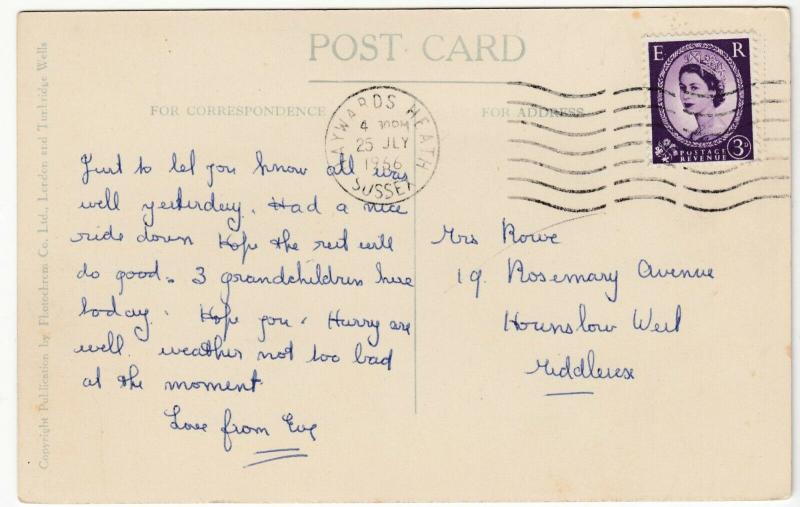 POST CARD
FOR CORRESPONDENCE
FOR ADDRESS
E R
POSTAGE
REVENUE
3D
HAYWARDS HEATH
4 30PM
25 JLY
1966
SUSSEX
Just to let you know all was
well yesterday. Had a nice
ride down Hope the rest will
do good. 3 grandchildren here
today. Hope you & Harry are
well. weather not too bad
at the moment
Love from Eve
Mrs Rowe
19. Rosemary Avenue
Hounslow West
Middlesex
Copyright Publication by Photochrom Co. Ltd., London and Tunbridge Wells